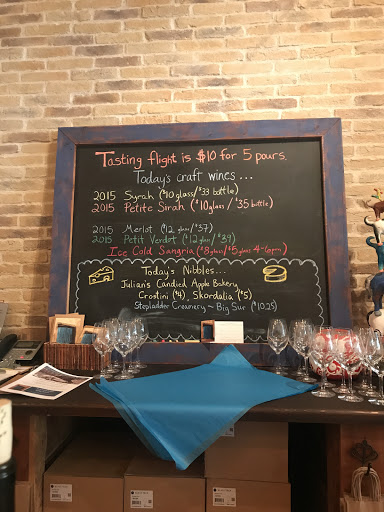 Tasting flight is $10 for 5 pours.
Today's craft wines...
2015 Syrah ($10 glass/$33 bottle)
2015 Petite Sirah ($10 glass/$35 bottle)
2015 Merlot ($12 glass/$37)
2015 Petit Verdot ($12 glass/$39)
Ice Cold Sangria ($8 glass/$5 glass 4-6pm)
Today's Nibbles...
Julian's Candied Apple Bakery
Crostini ($4), Skordalia ($5)
Stepladder Creamery ~ Big Sur ($10.25)